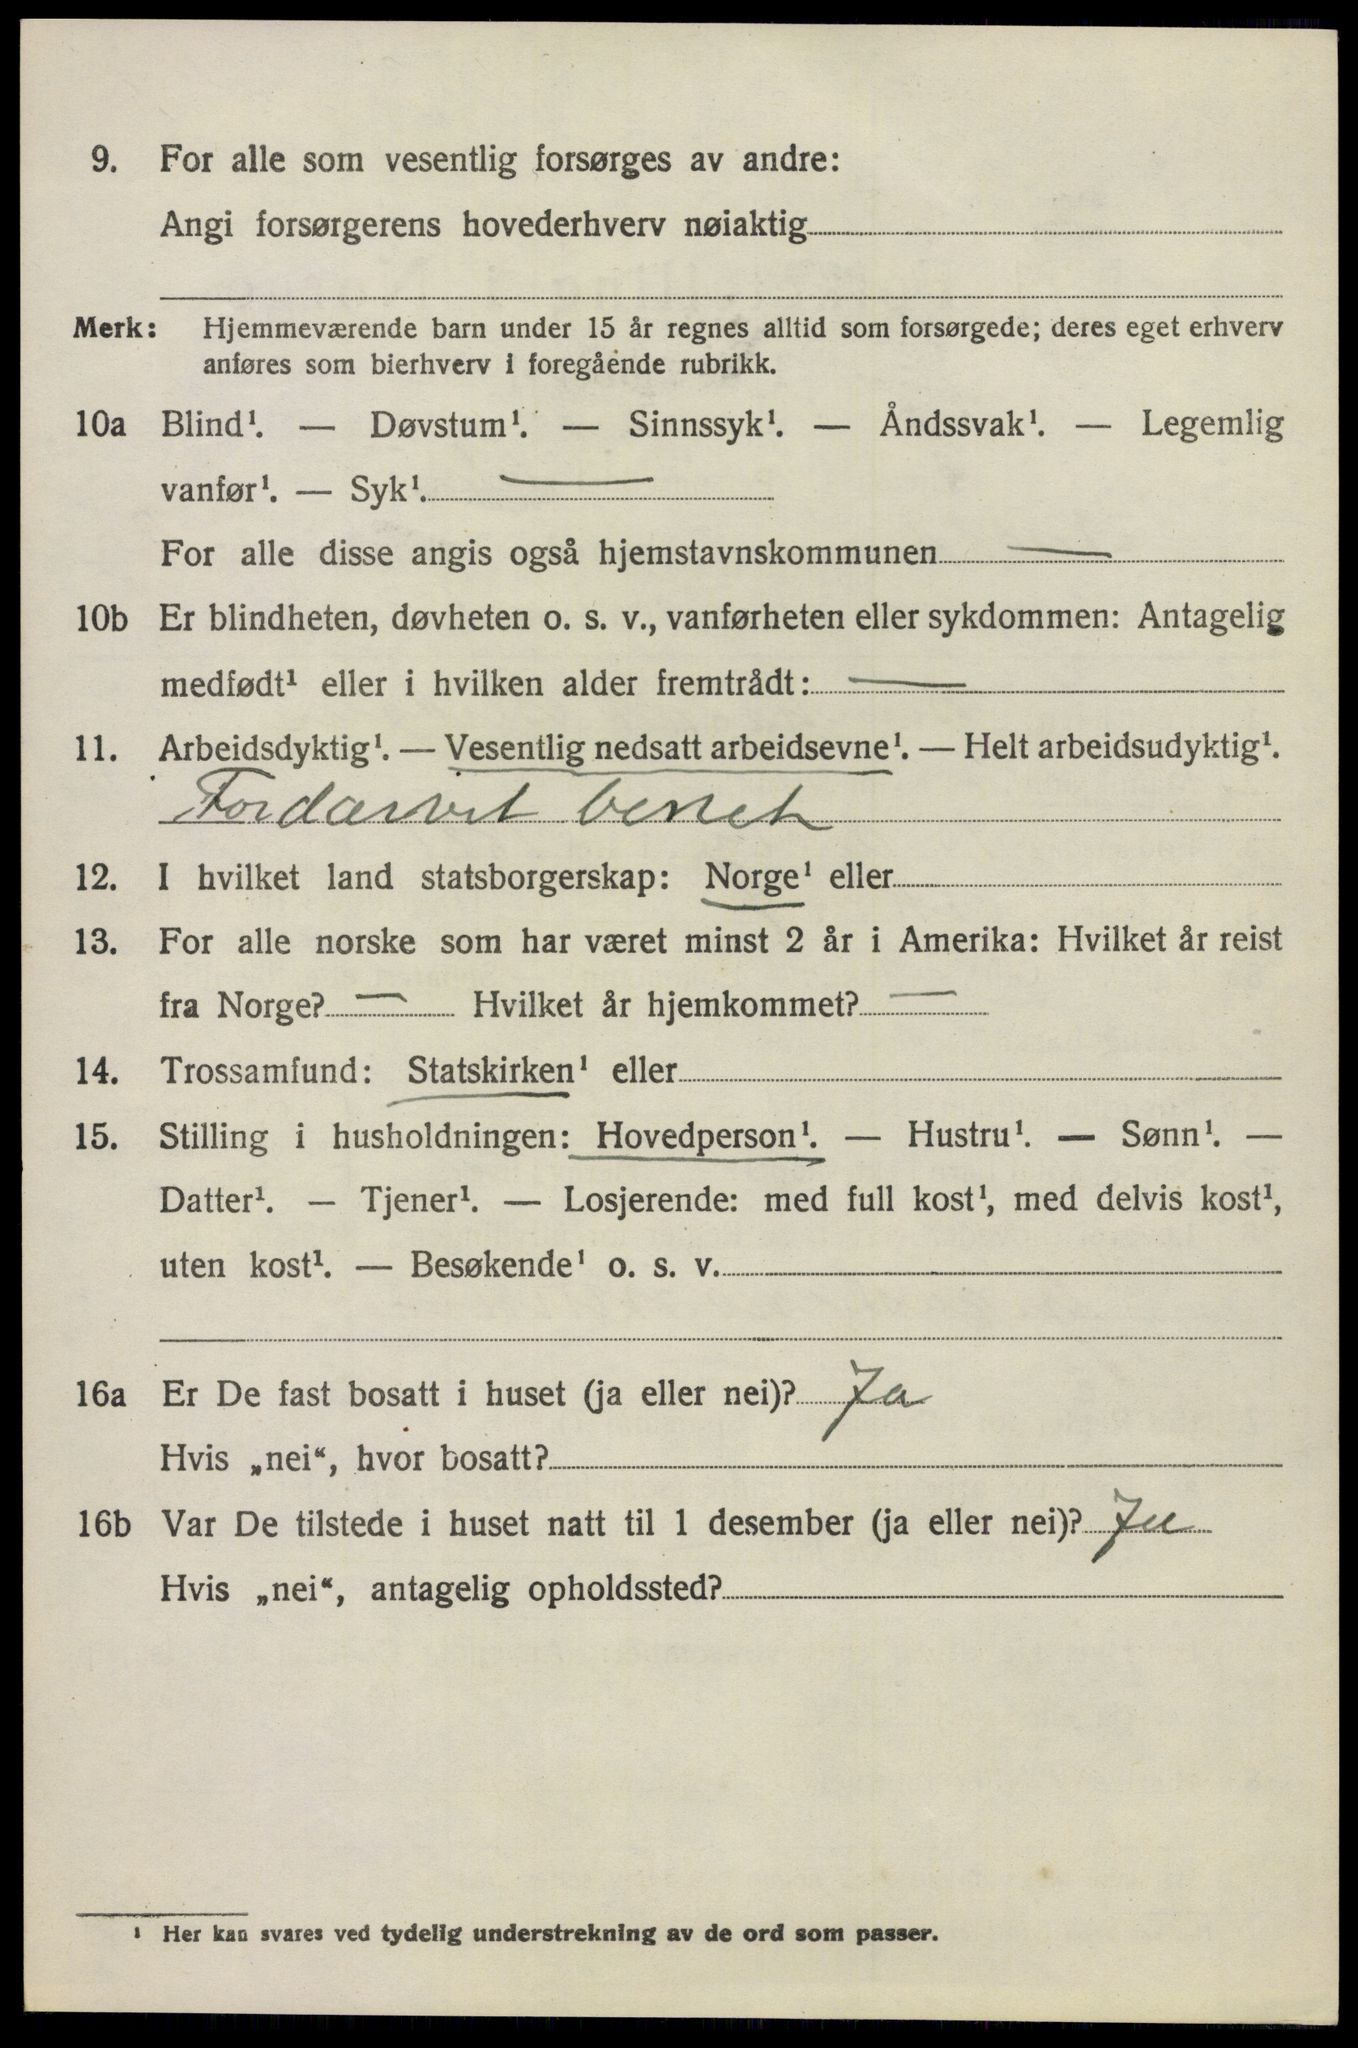 9. For alle som vesentlig forsørges av andre:
Angi forsørgerens hovederhverv nøiaktig
Merk: Hjemmeværende barn under 15 år regnes alltid som forsørgede; deres eget erhverv
anføres som bierhverv i foregående rubrikk.
10a Blind¹. — Døvstum¹. — Sinnssyk¹. — Åndssvak¹. — Legemlig
vanfør¹. — Syk¹. —
For alle disse angis også hjemstavnskommunen —
10b Er blindheten, døvheten o. s. v., vanførheten eller sykdommen: Antagelig
medfødt¹ eller i hvilken alder fremtrådt: —
11. Arbeidsdyktig¹. — Vesentlig nedsatt arbeidsevne¹. — Helt arbeidsudyktig¹.
Fordærvet benet
12. I hvilket land statsborgerskap: Norge¹ eller
13. For alle norske som har været minst 2 år i Amerika: Hvilket år reist
fra Norge? — Hvilket år hjemkommet? —
14. Trossamfund: Statskirken¹ eller
15. Stilling i husholdningen: Hovedperson¹. — Hustru¹. — Sønn¹. —
Datter¹. — Tjener¹. — Losjerende: med full kost¹, med delvis kost¹,
uten kost¹. — Besøkende¹ o. s. v.
16a Er De fast bosatt i huset (ja eller nei)? Ja
Hvis „nei“, hvor bosatt?
16b Var De tilstede i huset natt til 1 desember (ja eller nei)? Ja
Hvis „nei“, antagelig opholdssted?
¹ Her kan svares ved tydelig understrekning av de ord som passer.